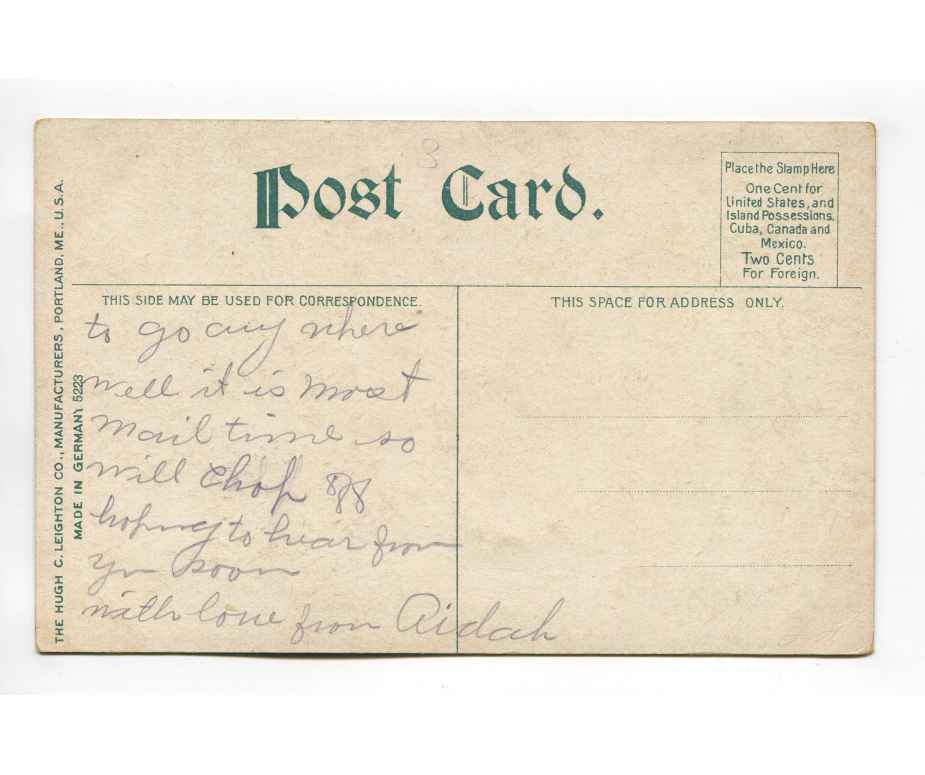 Post Card.
Place the Stamp Here
One Cent for
United States, and
Island Possessions,
Cuba, Canada and
Mexico.
Two Cents
For Foreign.
THIS SIDE MAY BE USED FOR CORRESPONDENCE.
THIS SPACE FOR ADDRESS ONLY.
to go any where
well it is most
mail time so
will chop off
hoping to hear from
you soon
with love from Aidah
THE HUGH C. LEIGHTON CO., MANUFACTURERS, PORTLAND, ME., U.S.A.
MADE IN GERMANY 5223